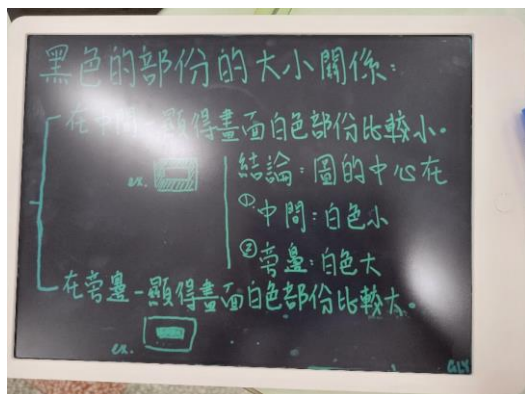 黑色的部份的大小關係：
在中間－顯得畫面白色部份比較小。
ex.
結論：圖的中心在
①中間：白色小
②旁邊：白色大
在旁邊－顯得畫面白色部份比較大。
ex.